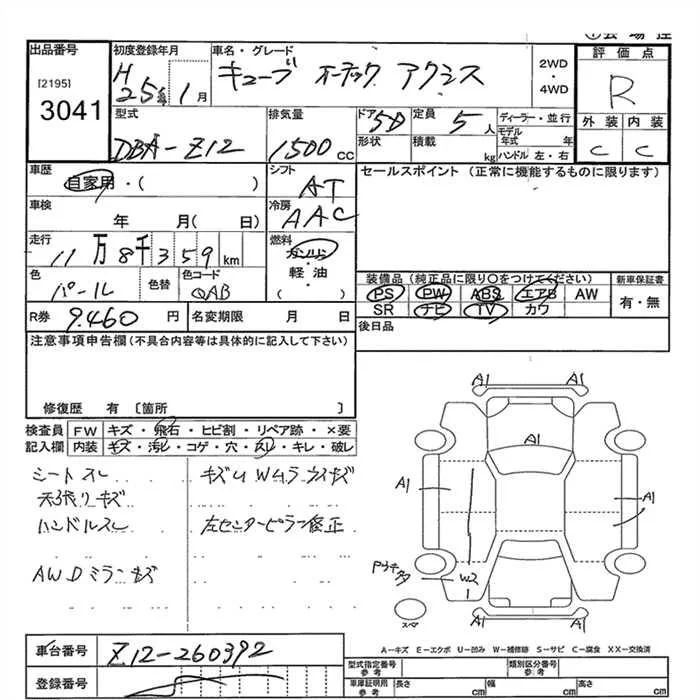 出品番号
[2195]
3041
初度登録年月
H
25年 1月
車名・グレード
キューブ オーテック アクシス
2WD
・
4WD
評価点
R
外装 内装
C C
型式
DBA-Z12
排気量
1500 CC
ドア 5D
形状
定員 5人
積載 kg
ディーラー・並行
モデル年式 年
ハンドル 左・右
車歴
自家用・( )
シフト
AT
セールスポイント(正常に機能するものに限ります)
車検
年 月( 日)
冷房
AAC
走行
11万8千359km
燃料
ガソリン
軽油
( )
色
パール
色替
色コード
QAB
装備品(純正品に限り○をつけてください)
PS PW ABS エアB AW
SR ナビ TV カワ
新車保証書
有・無
R券 9.460円
名変期限 月 日
後日品
注意事項申告欄(不具合内容等は具体的に記入して下さい)
修復歴 有〔箇所 〕
検査員
記入欄
FW キズ・飛石・ヒビ割・リペア跡・×要
内装 キズ・汚レ・コゲ・穴・スレ・キレ・破レ
シートスレ
天張りキズ
ハンドルスレ
AWDミラーキズ
キズU W
左センターピラー修正
A1 A1
A1
A1
A1
W2
A1 A1
スペア
A-キズ E-エクボ U-凹み W-補修跡 S-サビ C-腐食 XX-交換済
車台番号
Z12-260392
登録番号
型式指定番号
参考
類別区分番号
参考
車庫証明用
参考
長さ cm
幅 cm
高さ cm